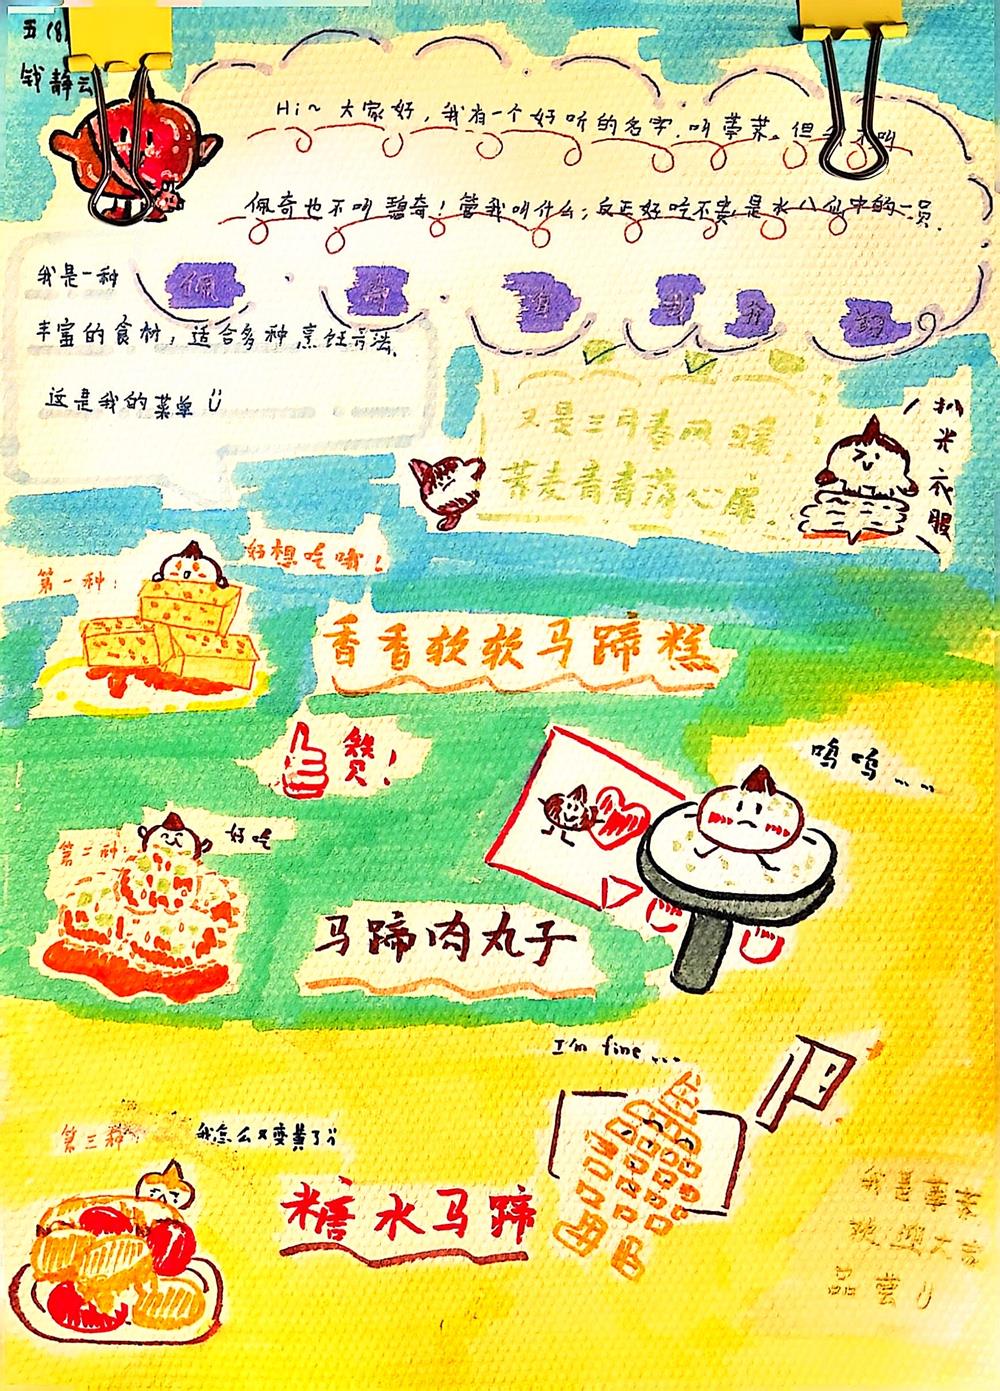 五(8)
钱静云
Hi~ 大家好，我有一个好听的名字，叫荸荠。但我不叫
佩奇也不叫碧奇！管我叫什么；反正好吃不贵，是水八仙中的一员.
我是一种
丰富的食材，适合多种烹饪方法.
这是我的菜单
又是三月春风暖
荞麦青青落心扉.
扒光衣服
第一种：
好想吃哦！
香香软软马蹄糕
赞！
呜呜……
第二种：
好吃
马蹄肉丸子
I'm fine...
第三种：
我怎么又变黄了
糖水马蹄
我是荸荠
欢迎大家
品尝